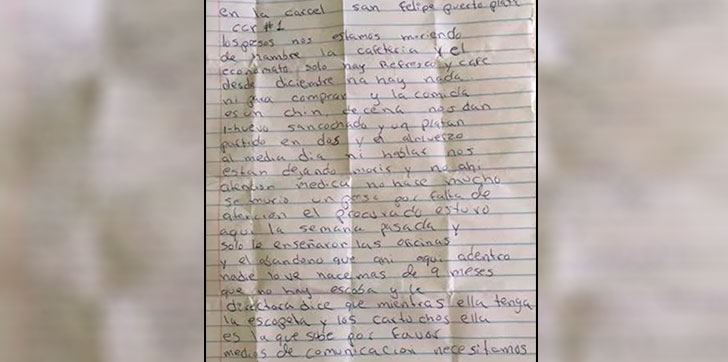 en la carcel san felipe puerto plata
ccr #1
los presos nos estamos muriendo
de hambre la cafeteria y el
economato solo hay Refresco y cafe
desde diciembre na hay nada
ni para comprar y la comida
es un chin, de cena nos dan
1 huevo sancochado y un platan
partido en dos y el alcuerzo
al media dia ni hablar nos
estan dejando moris y no ahi
medica no hace mucho
se murio un preso por falta de
atencion el procurado estuvo
aqui la semana pasada y
solo le enseñaron las oficinas
y el abandono que ahi aqui adentro
nadie lo ve hace mas de 9 meses
que no hay escoba y la
directora dice que mientras ella tenga
la escopeta y los cartuchos ella
es la que sabe por favor
medios de comunicacion necesitamos